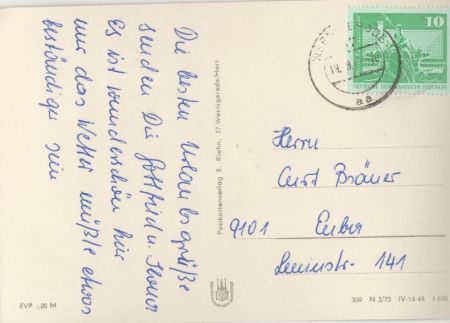 Die besten Urlaubsgrüße
senden Dir Gottfried u.
Es ist wunderschön hier
nur das Wetter müßte etwas
beständiger sein
Postkartenverlag E. Riehn, 37 Wernigerode/Harz
10
DEUTSCHE DEMOKRATISCHE REPUBLIK
aa
Herrn
Curt Bräuer
9101 Euba
Leninstr. 141
EVP -.20 M
309 N 3/75 IV-14-48 J 636